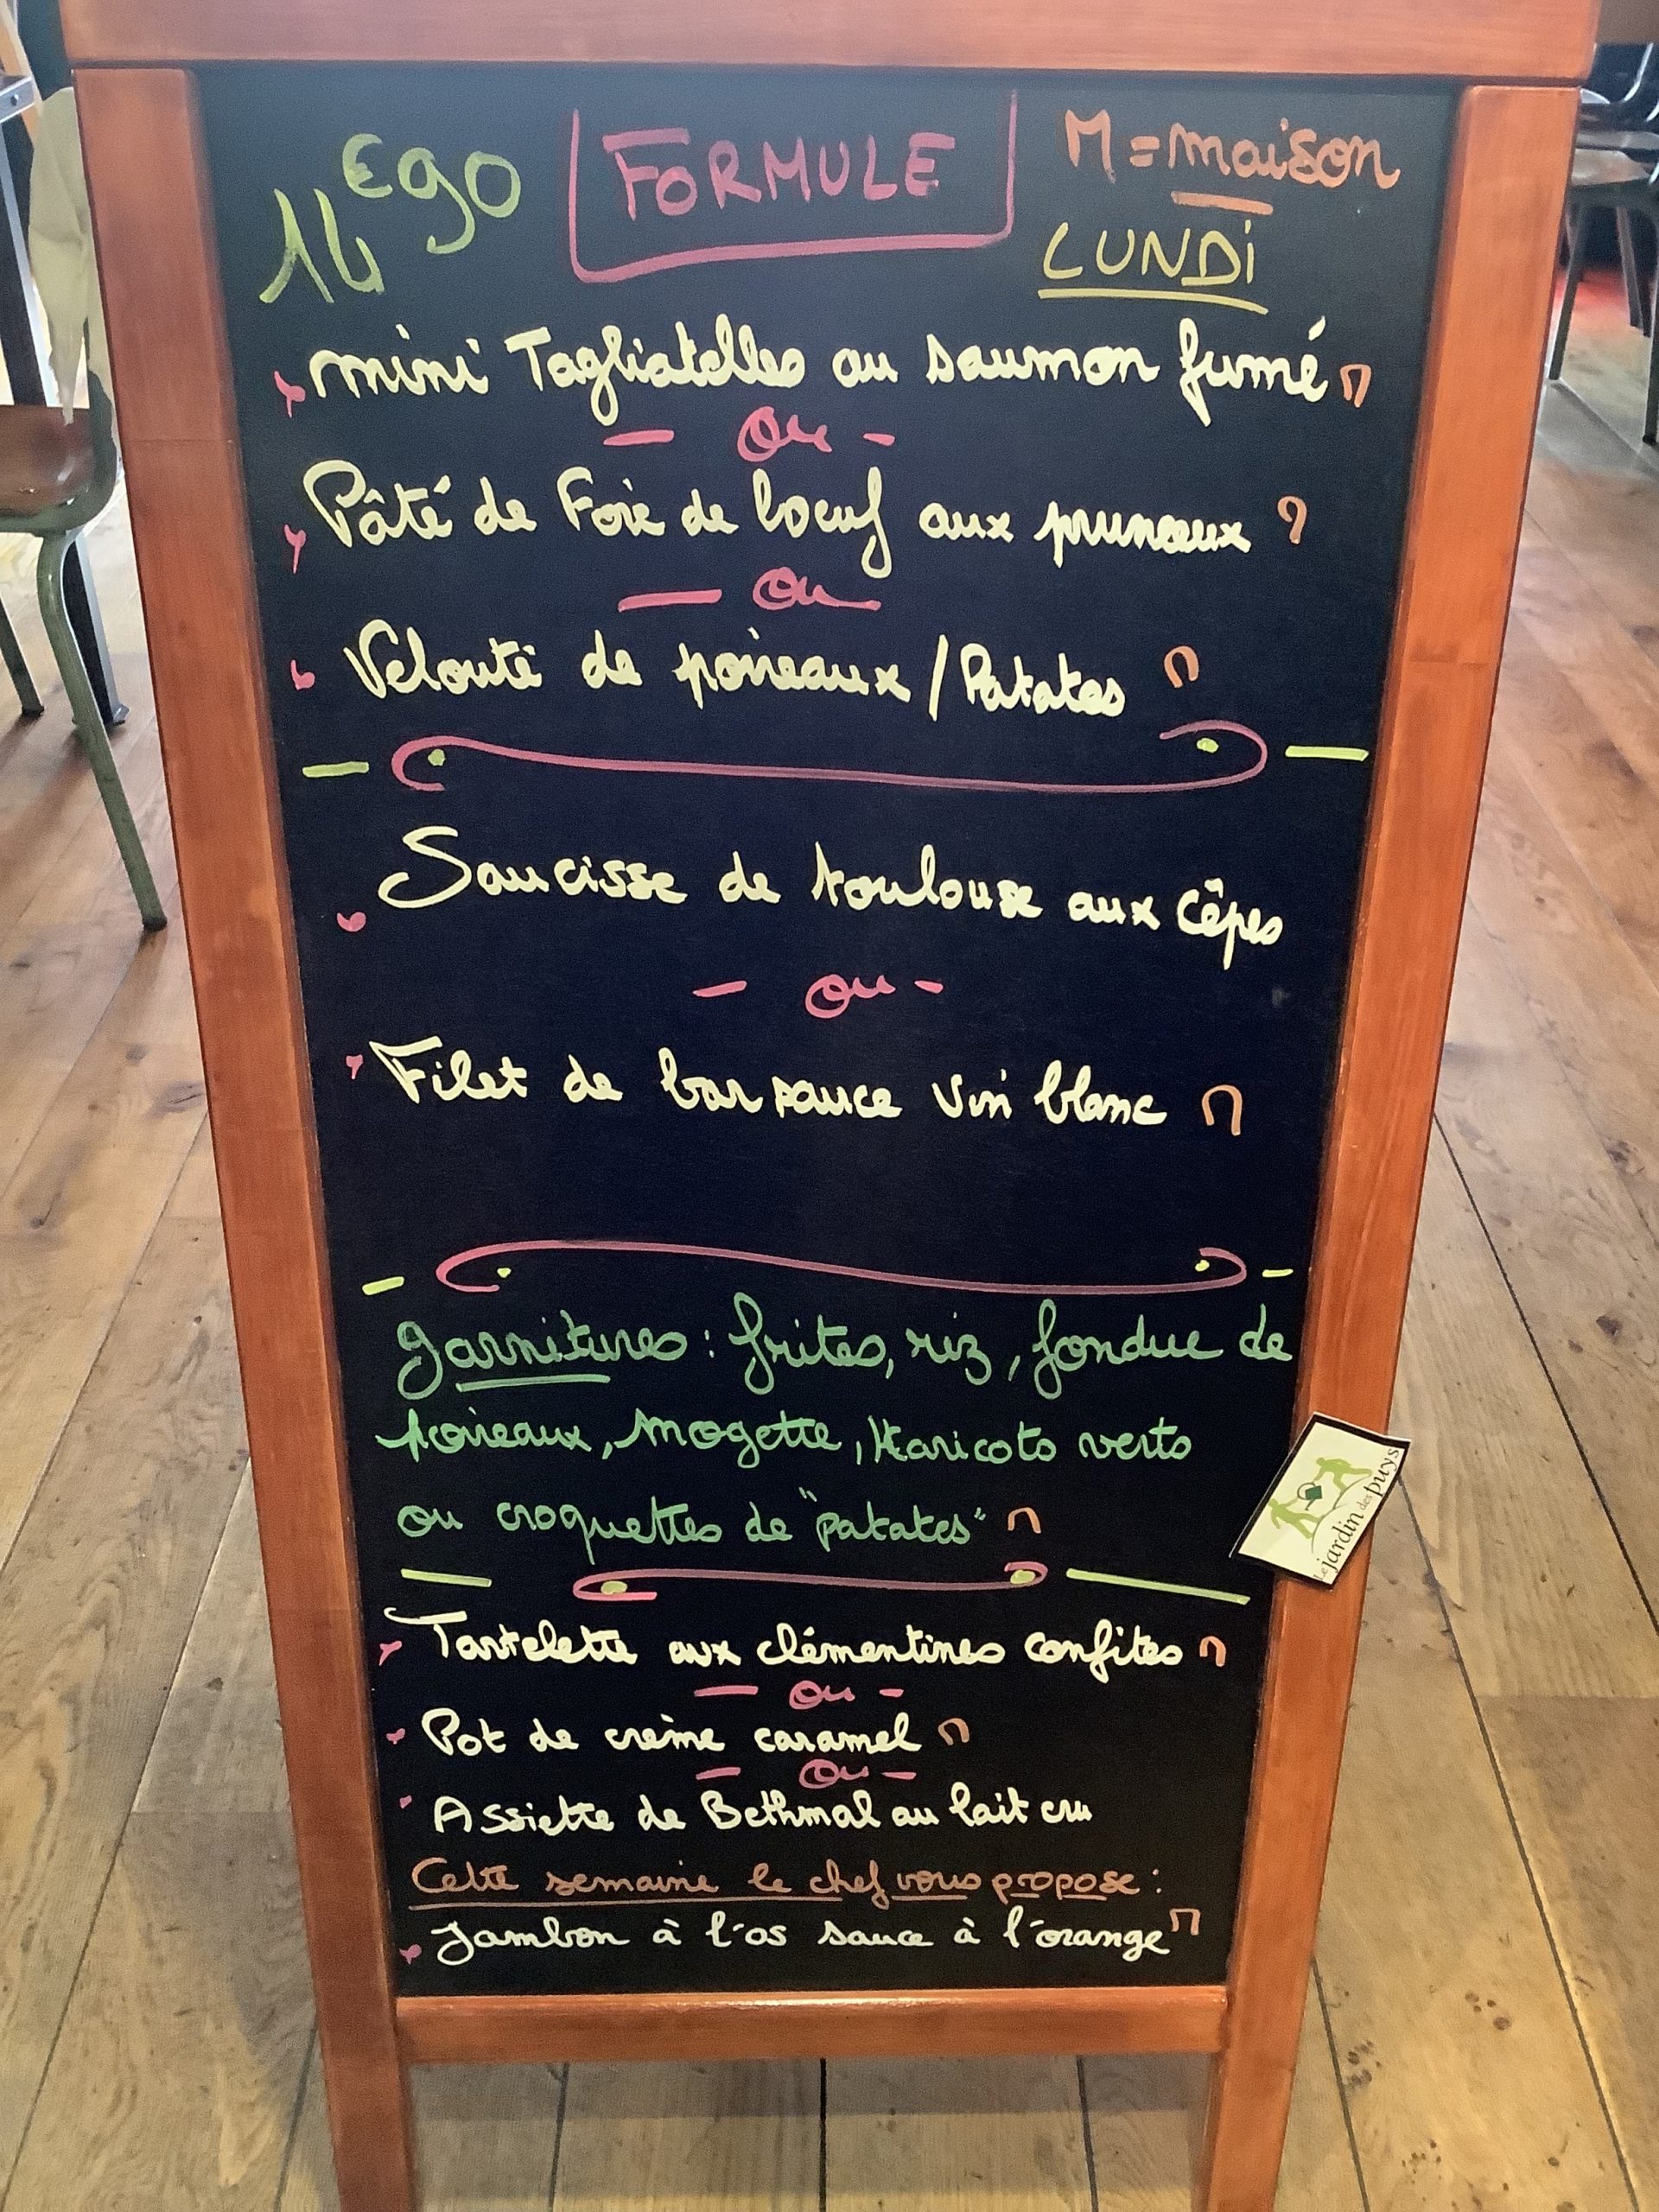 14€90 FORMULE M = maison
LUNDi
mini Tagliatelles au saumon fumé M
- ou -
Pâté de Foie de boeuf aux pruneaux M
- ou
Velouté de poireaux / Patates M
Saucisse de toulouse aux cêpes
- ou -
Filet de bar sauce vin blanc M
garnitures : frites, riz, fondue de
poireaux, mogette, Haricots verts
ou croquettes de "patates" M
Tartelette aux clémentines confites M
- ou -
Pot de crème caramel M
- ou -
Assiette de Bethmal au lait cru
Cette semaine le chef vous propose :
Jambon à l'os sauce à l'orange M
Le jardin des puys